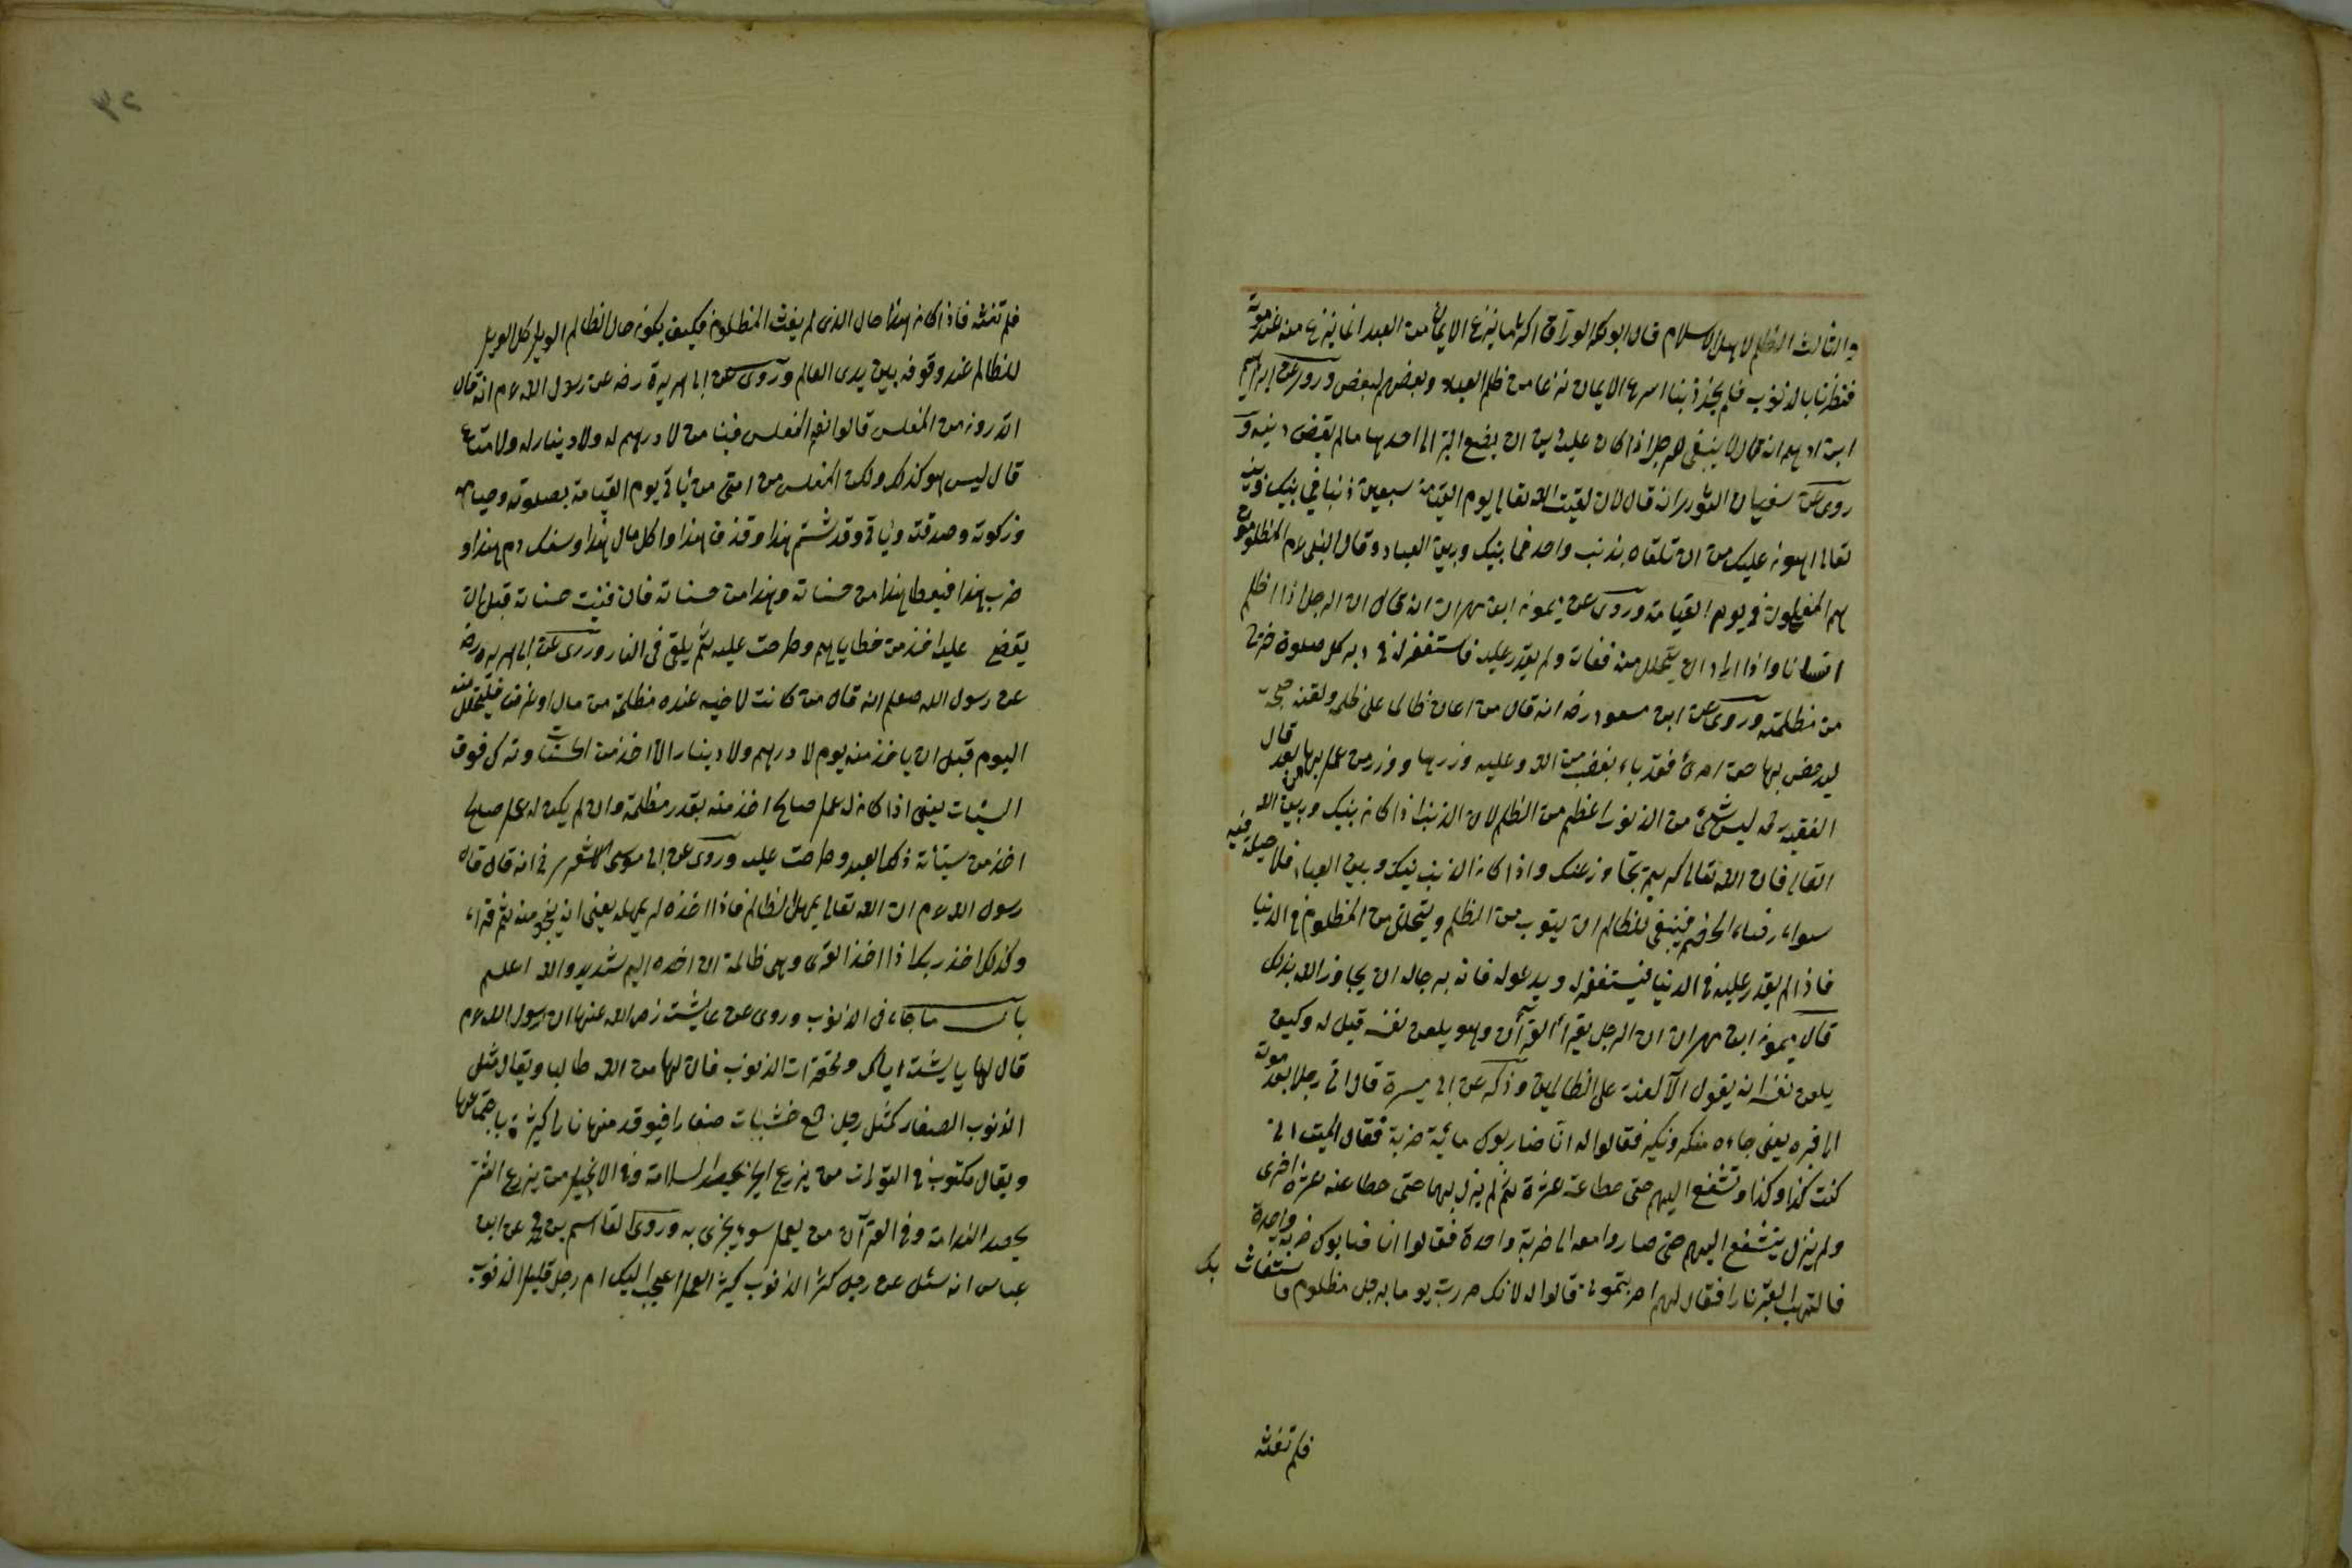 والثالث الظلم لاهل الاسلام قال ابوبكر الوراق اكثر ما ينزع الايمان من العبد انما ينزع منه عند موته
فنظرنا بالذنوب فلم نجد ذنبا اسرع الايمان نزعا من ظلم العباد وبعضهم لبعض وروى عن ابراهيم
ابن ادهم انه قال لا ينبغى لرجل اذا كان عليه دين ان يضع الزيت الى احدها مالم يقض دينه و
روى عن سفيان الثورى انه قال لان لقيت الله تعالى يوم القيمة سبعين ذنبا فى بينك وبينه
تعالى اهون عليك من ان تلقاه بذنب واحد فما بينك وبين العباد وقال النبى عم المظلومون
هم المفلحون فى يوم القيامة وروى عن ميمون ابن مهران انه قال ان الرجل اذا اظلم
انسانا واذا اراد ان يتحلل منه ففات ولم يقدر عليه فاستغفر له فى دبر كل صلوة خرج
من مظلمته وروى عن ابن مسعود رضه انه قال من اعان ظالما على ظلمه ولقنه حجة
ليدحض بها حق امرئ فقد باء بغضب من الله وعليه وزرها ووزر من عمل بها بعد قال
الفقيه رحمه ليس شئ من الذنوب اعظم من الظلم لان الذنب اذا كان بينك وبين الله
تعالى فان الله تعالى كريم يتجاوز عنك واذا كان الذنب بينك وبين العباد فلا حيلة فيه
سواء رضاء الخصم فينبغى للظالم ان يتوب من الظلم ويتحلل من المظلوم فى الدنيا
فاذا لم يقدر عليه فى الدنيا فيستغفر له ويدعو له فانه يرجا له ان يجاوز الله بذلك
قال ميمون ابن مهران ان الرجل يقرأ القرآن وهو يلعن نفسه قيل له وكيف
يلعن نفسه انه يقول الا لعنة على الظالمين وذكر عن ابى ميسرة قال اتى رجلا بعد موته
الى قبره يعنى جاءه منكر ونكير فقالوا له انا ضاربوك مائية ضربة فقال الميت انى
كنت كذا وكذا وتشفع اليهم حتى حطا عنه عشرة ثم لم يزل بهما حتى حطا عنه عشرة اخرى
ولم يزل يتشفع اليهم حتى صاروا معه الى ضربة واحدة فقالوا انا ضاربوك ضربة واحدة
فالتهب القبر نارا فقال لهم لم ضربتمونى قالوا له لانك مررت يوما برجل مظلوم فاستغاث بك
فلم تغثه
فلم تغثه فاذا كان هذا حال الذى لم يغث المظلوم فكيف يكون حال الظالم الويل كل الويل
للظالم عند وقوفه بين يدى العالم وروى عن ابى هريرة رضه عن رسول الله عم انه قال
اتدرون من المفلس قالوا نعم المفلس فينا من لا درهم له ولا دينار له ولا متاع
قال ليس هو كذلك ولكن المفلس من امتى من يأتى يوم القيامة بصلوته وصيامه
وزكوته وصدقته ويأتى وقد شتم هذا وقذف هذا واكل مال هذا وسفك دم هذا و
ضرب هذا فيعطا هذا من حسناته وهذا من حسناته فان فنيت حسناته قبل ان
يقضى عليه اخذ من خطاياهم وطرحت عليه ثم يلقى فى النار وروى عن ابى هريره رضه
عن رسول الله صلعم انه قال من كانت لاخيه عنده مظلمة من مال او عرض فليتحلل منه
اليوم قبل ان ياخذ منه يوم لا درهم ولا دينار الا اخذ من الحسنات وترك فوق
السيئات يعنى اذا كان له عمل صالح اخذ منه بقدر مظلمة وان لم يكن له عمل صالح
اخذ من سيئات ذلك العبد وطرحت عليه وروى عن ابى موسى الاشعرى رض انه قال قال
رسول الله عم ان الله تعالى يمهل لظالم فاذا اخذه لم يمهله يعنى ان ينجو منه ثم قراء
وكذلك اخذ ربك اذا اخذ القرى وهى ظالمة ان اخذه اليم شديد والله اعلم
باب ما جاء فى الذنوب وروى عن عايشة رض الله عنها ان رسول الله عم
قال لها يا عايشة اياك ومحقرات الذنوب فان لها من الله طالبا ويقال مثل
الذنوب الصغار كمثل رجل جمع خشبات صغار فيوقد منها نارا كبيرة باجتماعها
ويقال مكتوب فى التورات من يزرع الخير يحصد السلامة وفى الانجيل من يزرع الشر
يحصد الندامة وفى القرآن من يعمل سوء يجزى به وروى القاسم بن محمد عن ابن
عباس انه سئل عن رجل كثر الذنوب كثير العمل اعجب اليك ام رجل قليل الذنوب